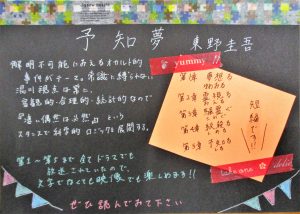 予知夢 東野圭吾
解明不可能にみえるオカルト的
事件がテーマ。常識に縛られない
湯川視点は常に、
客観的・合理的・統計的なので
『悪い偶然は必然』という
スタンスで科学的、ロジックを展開する。
第1〜第5まで全てドラマでも
放送されていたので、
文字でなくても映像でも楽しめます!!
ぜひ読んでみて下さい
yummy !!
第1章 夢想る
第2章 霊視る
第3章 騒霊ぐ
第4章 絞殺る
第5章 予知る
短編です!!
take one